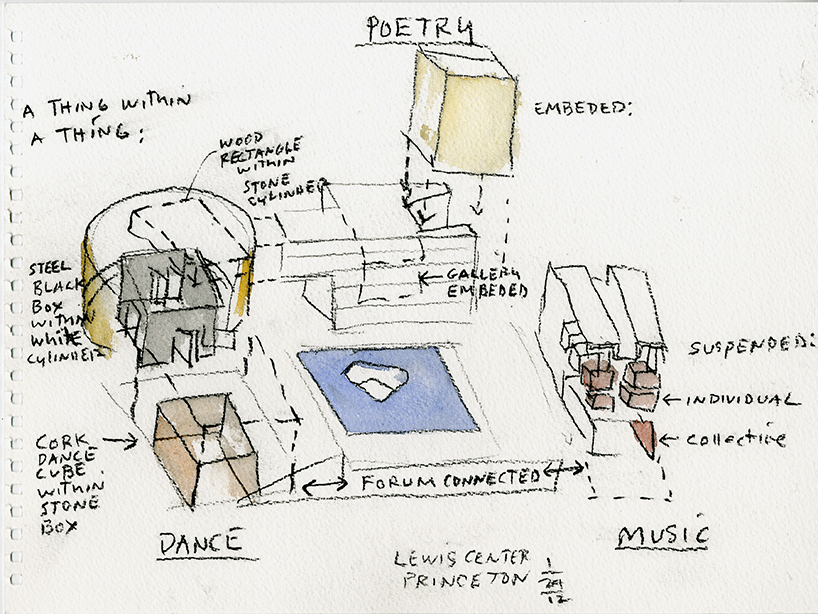 POETRY
A THING WITHIN
A THING:
WOOD
RECTANGLE
WITHIN
STONE
CYLINDER
EMBEDED:
STEEL
BLACK
BOX
WITHIN
WHITE
CYLINDER
GALLERY
EMBEDED
SUSPENDED:
INDIVIDUAL
COLLECTIVE
CORK
DANCE
CUBE
WITHIN
STONE
BOX
FORUM CONNECTED
DANCE
MUSIC
LEWIS CENTER
PRINCETON
1
24
12